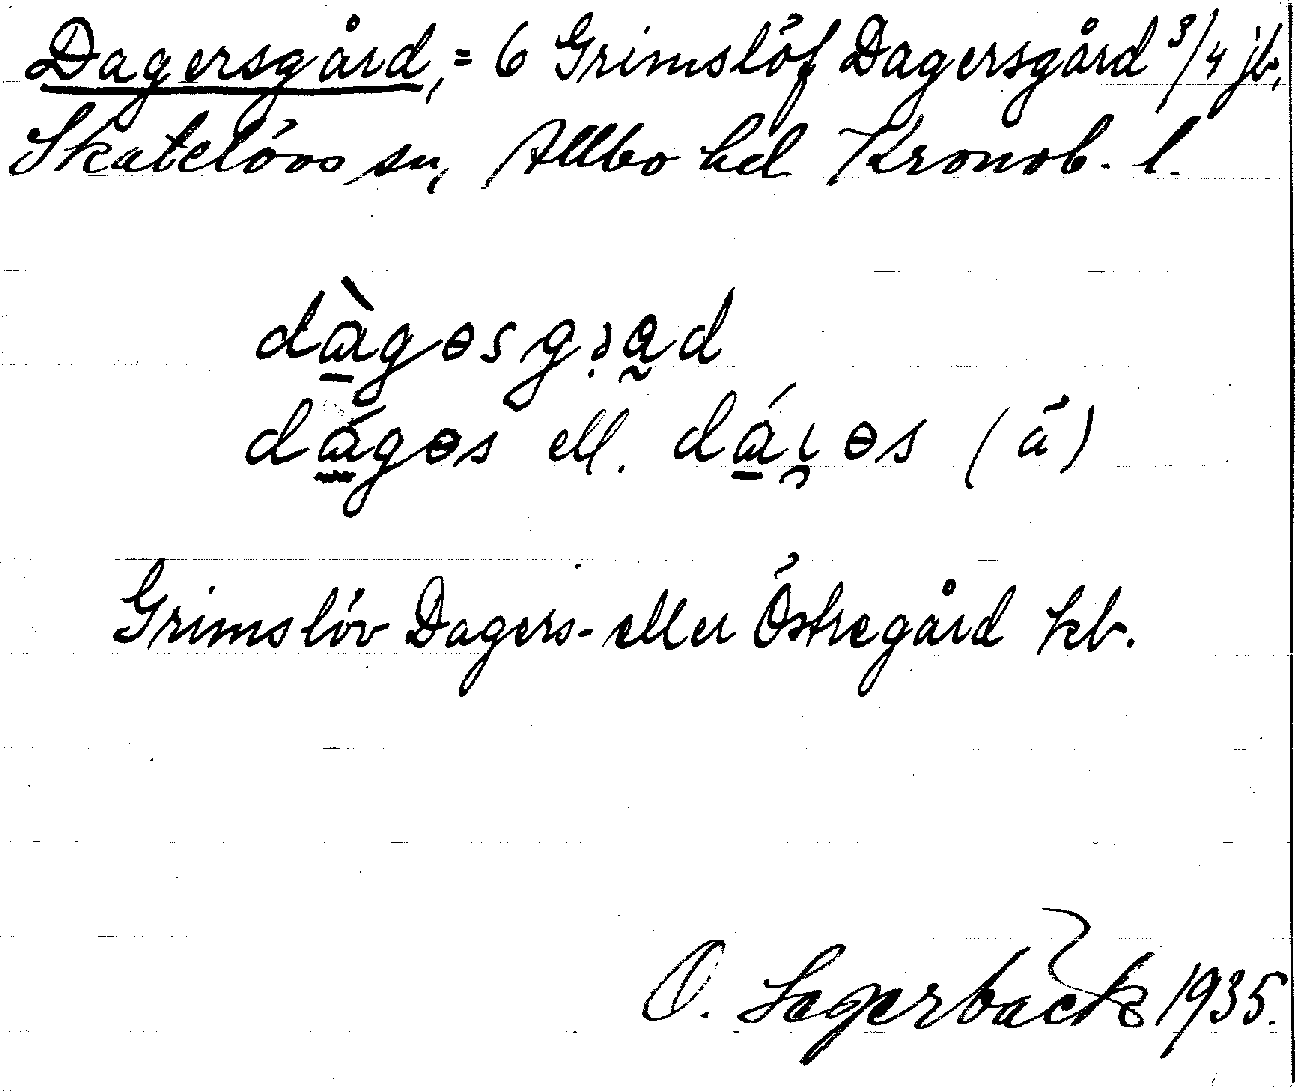 Dagersgård, = 6 Grimslöf Dagersgård 3/4 jb,
Skatelövs sn, Allbo hd Kronob. l.
dàgɵsgɹad
dágɵs ell. dáɪɵs (á)
Grimslöv Dagers- eller Östregård kb.
O. Lagerbäck 1935.